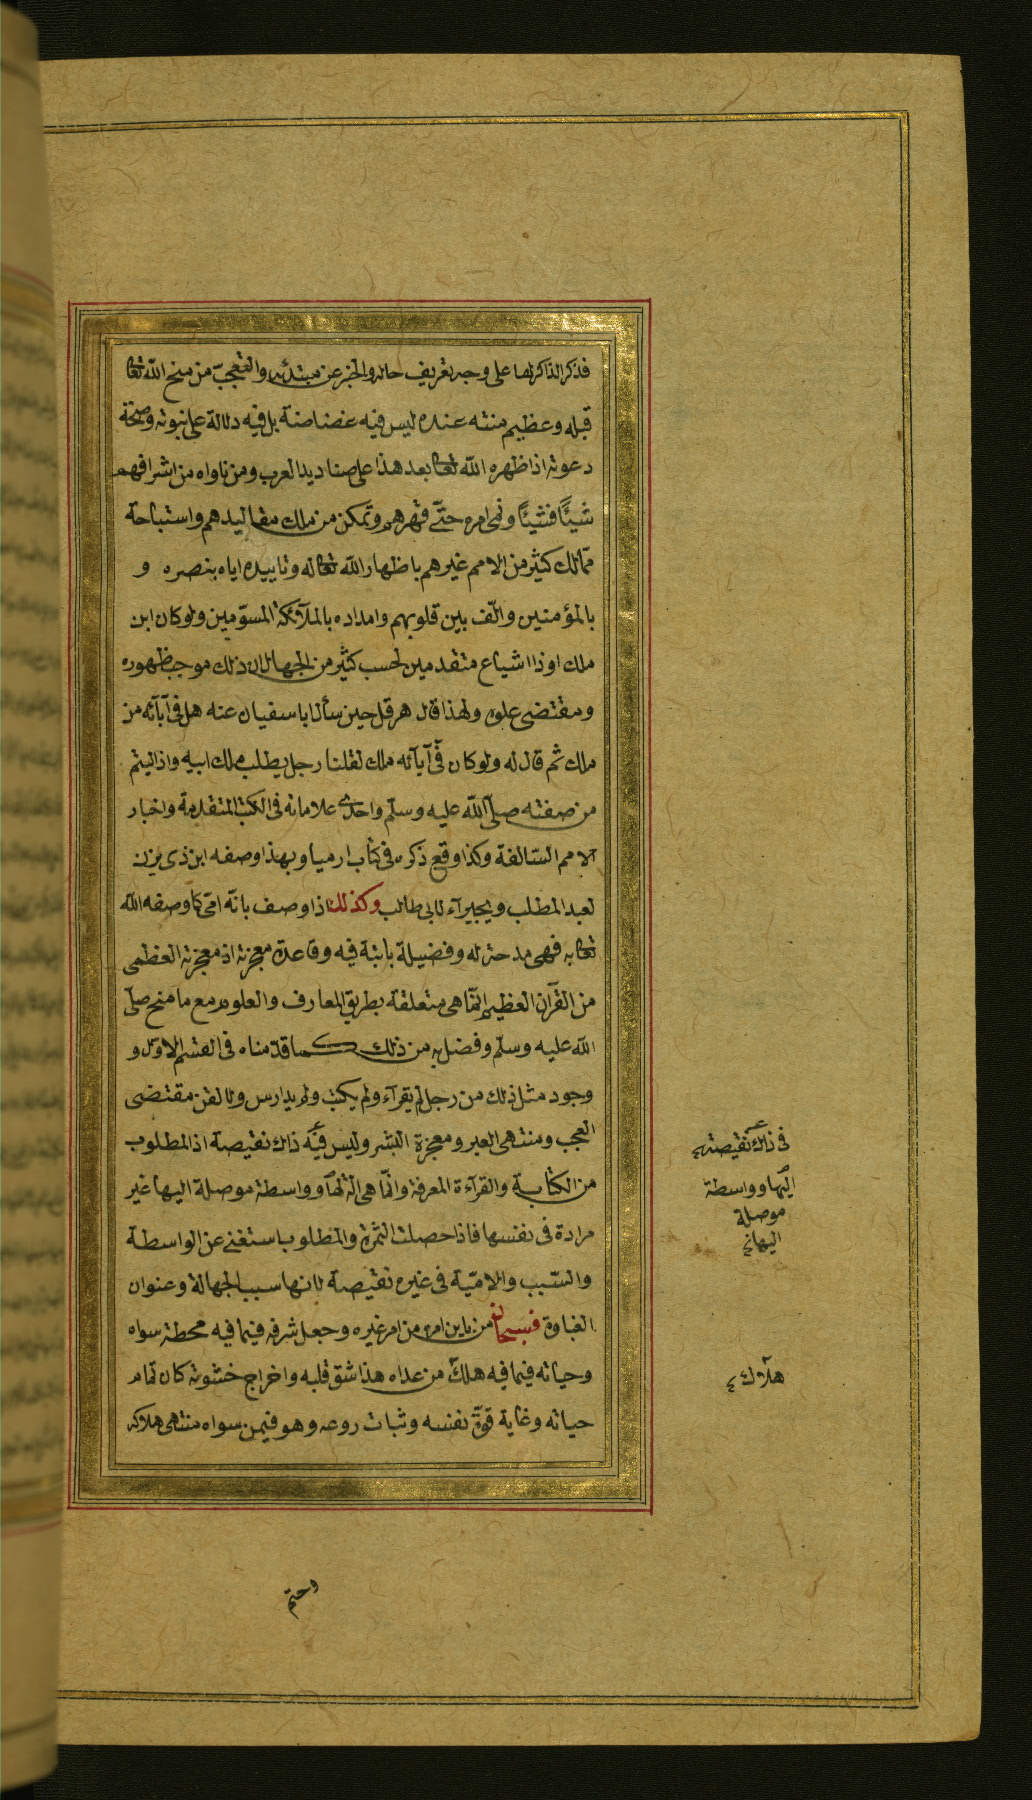 فذكر الذاكر لها على وجه تعريف حاله والخبر عن مبتدئه والتعجب من منح الله تعا
قبله وعظيم منته عنده ليس فيه غضاضة بل فيه دلالة على نبوته وصحة
دعوته اذ اظهره الله تعا بعد هذا على صناديد العرب ومن ناواه من اشرافهم
شيئًا فشيئًا ونمى امره حتّى قهرهم وتمكن من ملك مقاليدهم واستباحة
ممالك كثير من الامم غيرهم باظهار الله تعا له وتاييده اياه بنصره و
بالمؤمنين والّف بين قلوبهم وامداده بالملآئكة المسوّمين ولو كان ابن
ملك او ذا اشياع متقدمين لحسب كثير من الجهال ان ذلك موجب ظهوره
ومقتضى علوه ولهذا قال هرقل حين سأل ابا سفيان عنه هل فى آبآئه من
ملك ثم قال له ولو كان فى آبآئه ملك لقلنا رجل يطلب ملك ابيه واذ اليتم
من صفته صلّى الله عليه وسلّم واحدى علاماته فى الكتب المتقدمة واخبار
الامم السّالفة وكذا وقع ذكره فى كتاب ارميا وبهذا وصفه ابن ذى يزن
لعبد المطلب وبحيرآء لابى طالب وكذلك اذا وصف بانّه امّى كما وصفه الله
تعا به فهى مدحة له وفضيلة ثابتة فيه وقاعدة معجزته اذ معجزته العظمى
من القرآن العظيم انّما هى متعلقة بطريق المعارف والعلوم مع ما منح صلّى
الله عليه وسلّم وفضل به من ذلك كما قدّمناه فى القسم الاوّل و
وجود مثل ذلك من رجل لم يقرآء ولم يكتب ولم يدارس ولا لقن مقتضى
العجب ومنتهى العبر ومعجزة البشر وليس فيه ذلك نقيصة اذ المطلوب
من الكتابة والقرآءة المعرفة وانّما هى الة لها وواسطة موصلة اليها غير
مرادة فى نفسها فاذا حصلت الثمرة والمطلوب استغنى عن الواسطة
والسّبب والامّية فى غيره نقيصة لانها سبب الجهالة وعنوان
الغباوة فسبحان من باين امره من امر غيره وجعل شرفه فيما فيه محطة سواه
وحياته فيما فيه هلك من عداه هذا شق قلبه واخراج حشوته كان تمام
حياته وغاية قوة نفسه وثبات روعه وهو فيمن سواه منتهى هلاكه
فى ذلك نقيصة
اليها وواسطة
موصلة
اليها
هلاك
وحتم